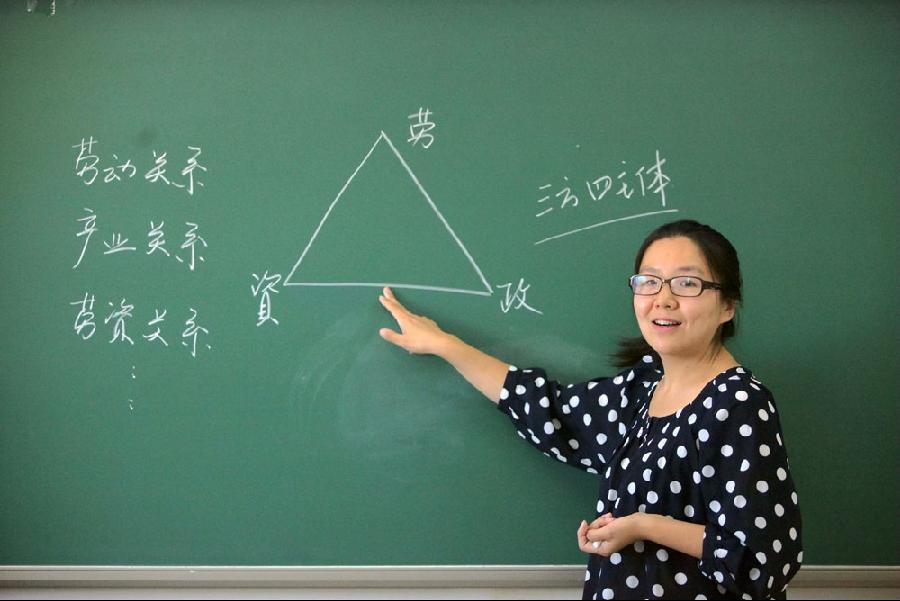 劳动关系
产业关系
劳資关系
⋮
劳
資
政
三方四主体